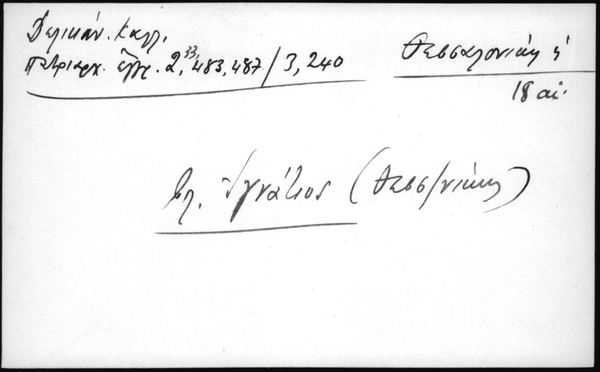 Δελικάν. Καλλ.
πατριαρχ. ἔγγρ. 2, 33, 483, 487 / 3, 240
Θεσσαλονίκη
18 αἰ.
βλ. Ἰγνάτιος (Θεσσ/νίκης)